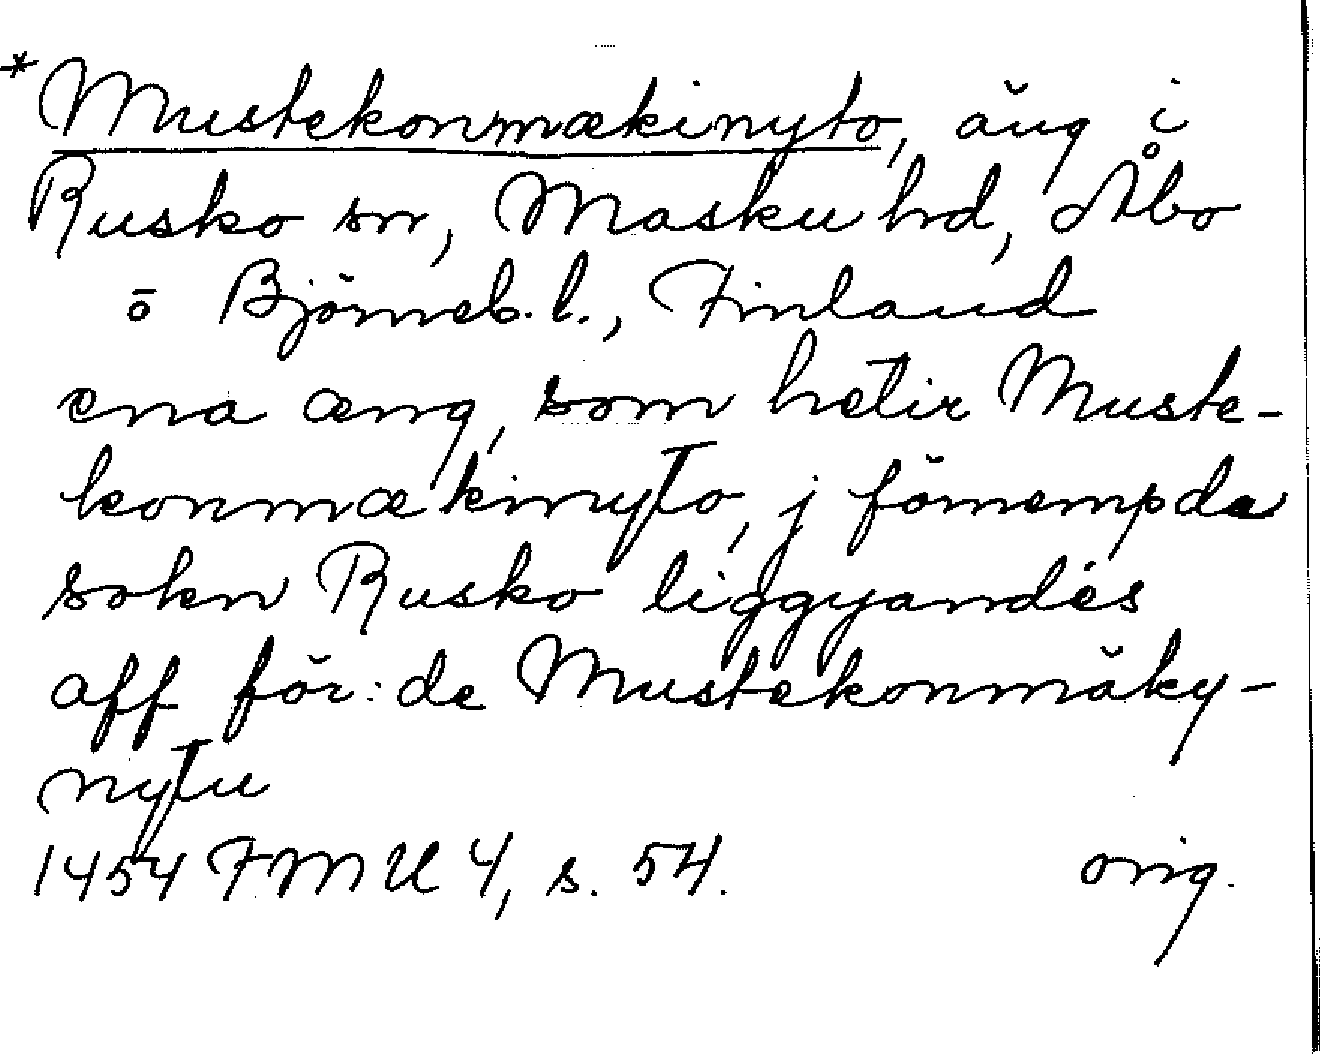 *Mustekonmækinyto, äng i
Rusko sn, Masku hd, Åbo
o Björneb. l., Finland
ena æng, som hetir Muste-
konmækinyto, j förnempda
sokn Rusko liggyandes
aff för:de Mustekonmäky-
nytu
1454 FMU 4, s. 54. orig.